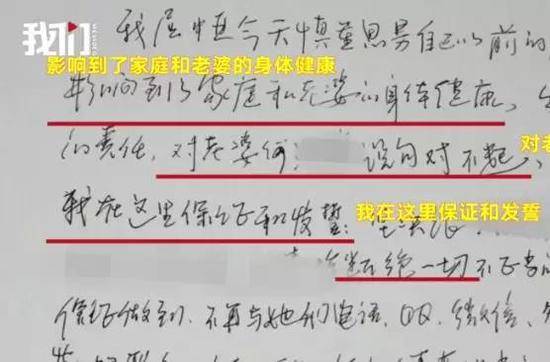 我们
WEVIDEO
我屈中恒今天慎重思易自己以前的
影响到了家庭和老婆的身体健康
影响到了家庭和老婆的身体健康,
的责任,对老婆何 说句对不起、
对老
我在这里保证和发誓:
我在这里保证和发誓
断绝一切不正当
保证做到,不再与她们电话、QQ、微信、